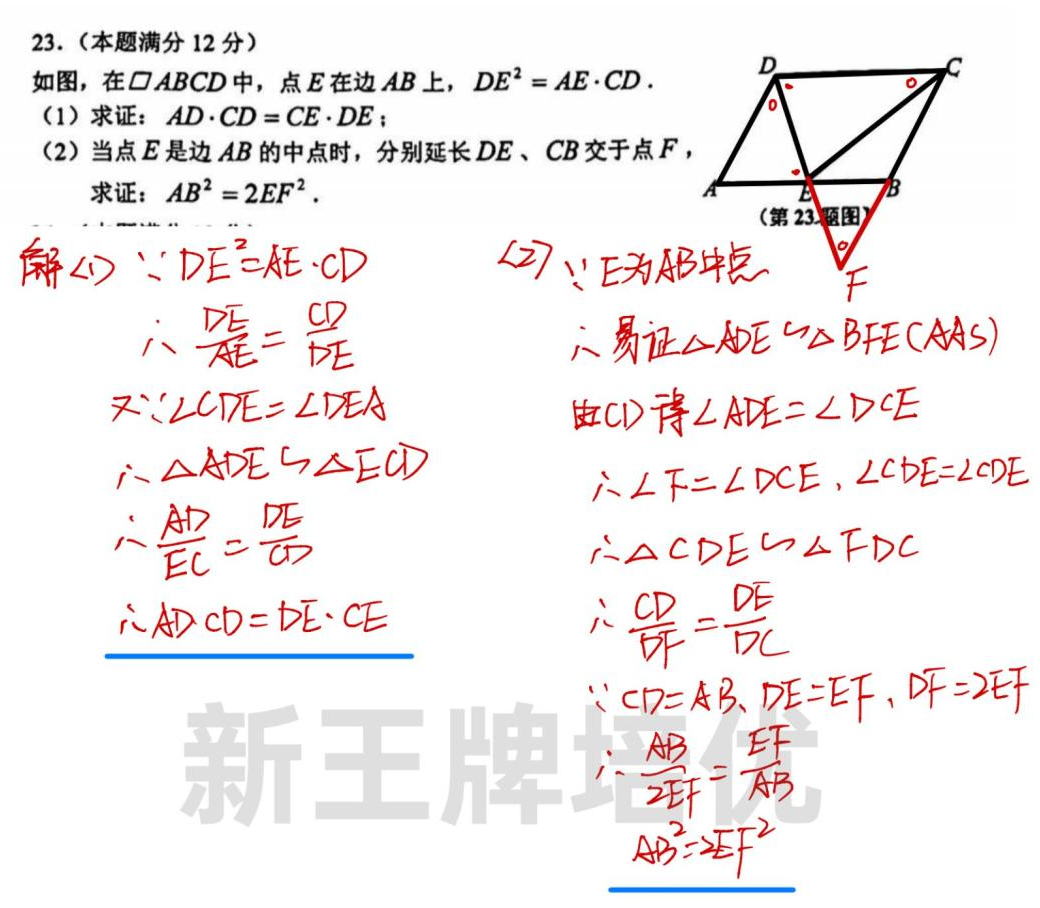 23.(本题满分 12 分)
如图,在□ABCD 中,点 E 在边 AB 上,DE² = AE·CD.
(1)求证:AD·CD = CE·DE;
(2)当点 E 是边 AB 的中点时,分别延长 DE、CB 交于点 F,
求证:AB² = 2EF².
D
C
A
E
B
F
(第 23 题图)
解(1) ∵ DE²=AE·CD
∴ DE/AE = CD/DE
又∵∠CDE=∠DEA
∴△ADE∽△ECD
∴ AD/EC = DE/CD
∴AD·CD=DE·CE
(2) ∵E为AB中点
∴易证△ADE∽△BFE(AAS)
由(1)得∠ADE=∠DCE
∴∠F=∠DCE、∠CDE=∠CDE
∴△CDE∽△FDC
∴ CD/DF = DE/DC
∵CD=AB、DE=EF、DF=2EF
∴ AB/2EF = EF/AB
AB²=2EF²
新王牌培优